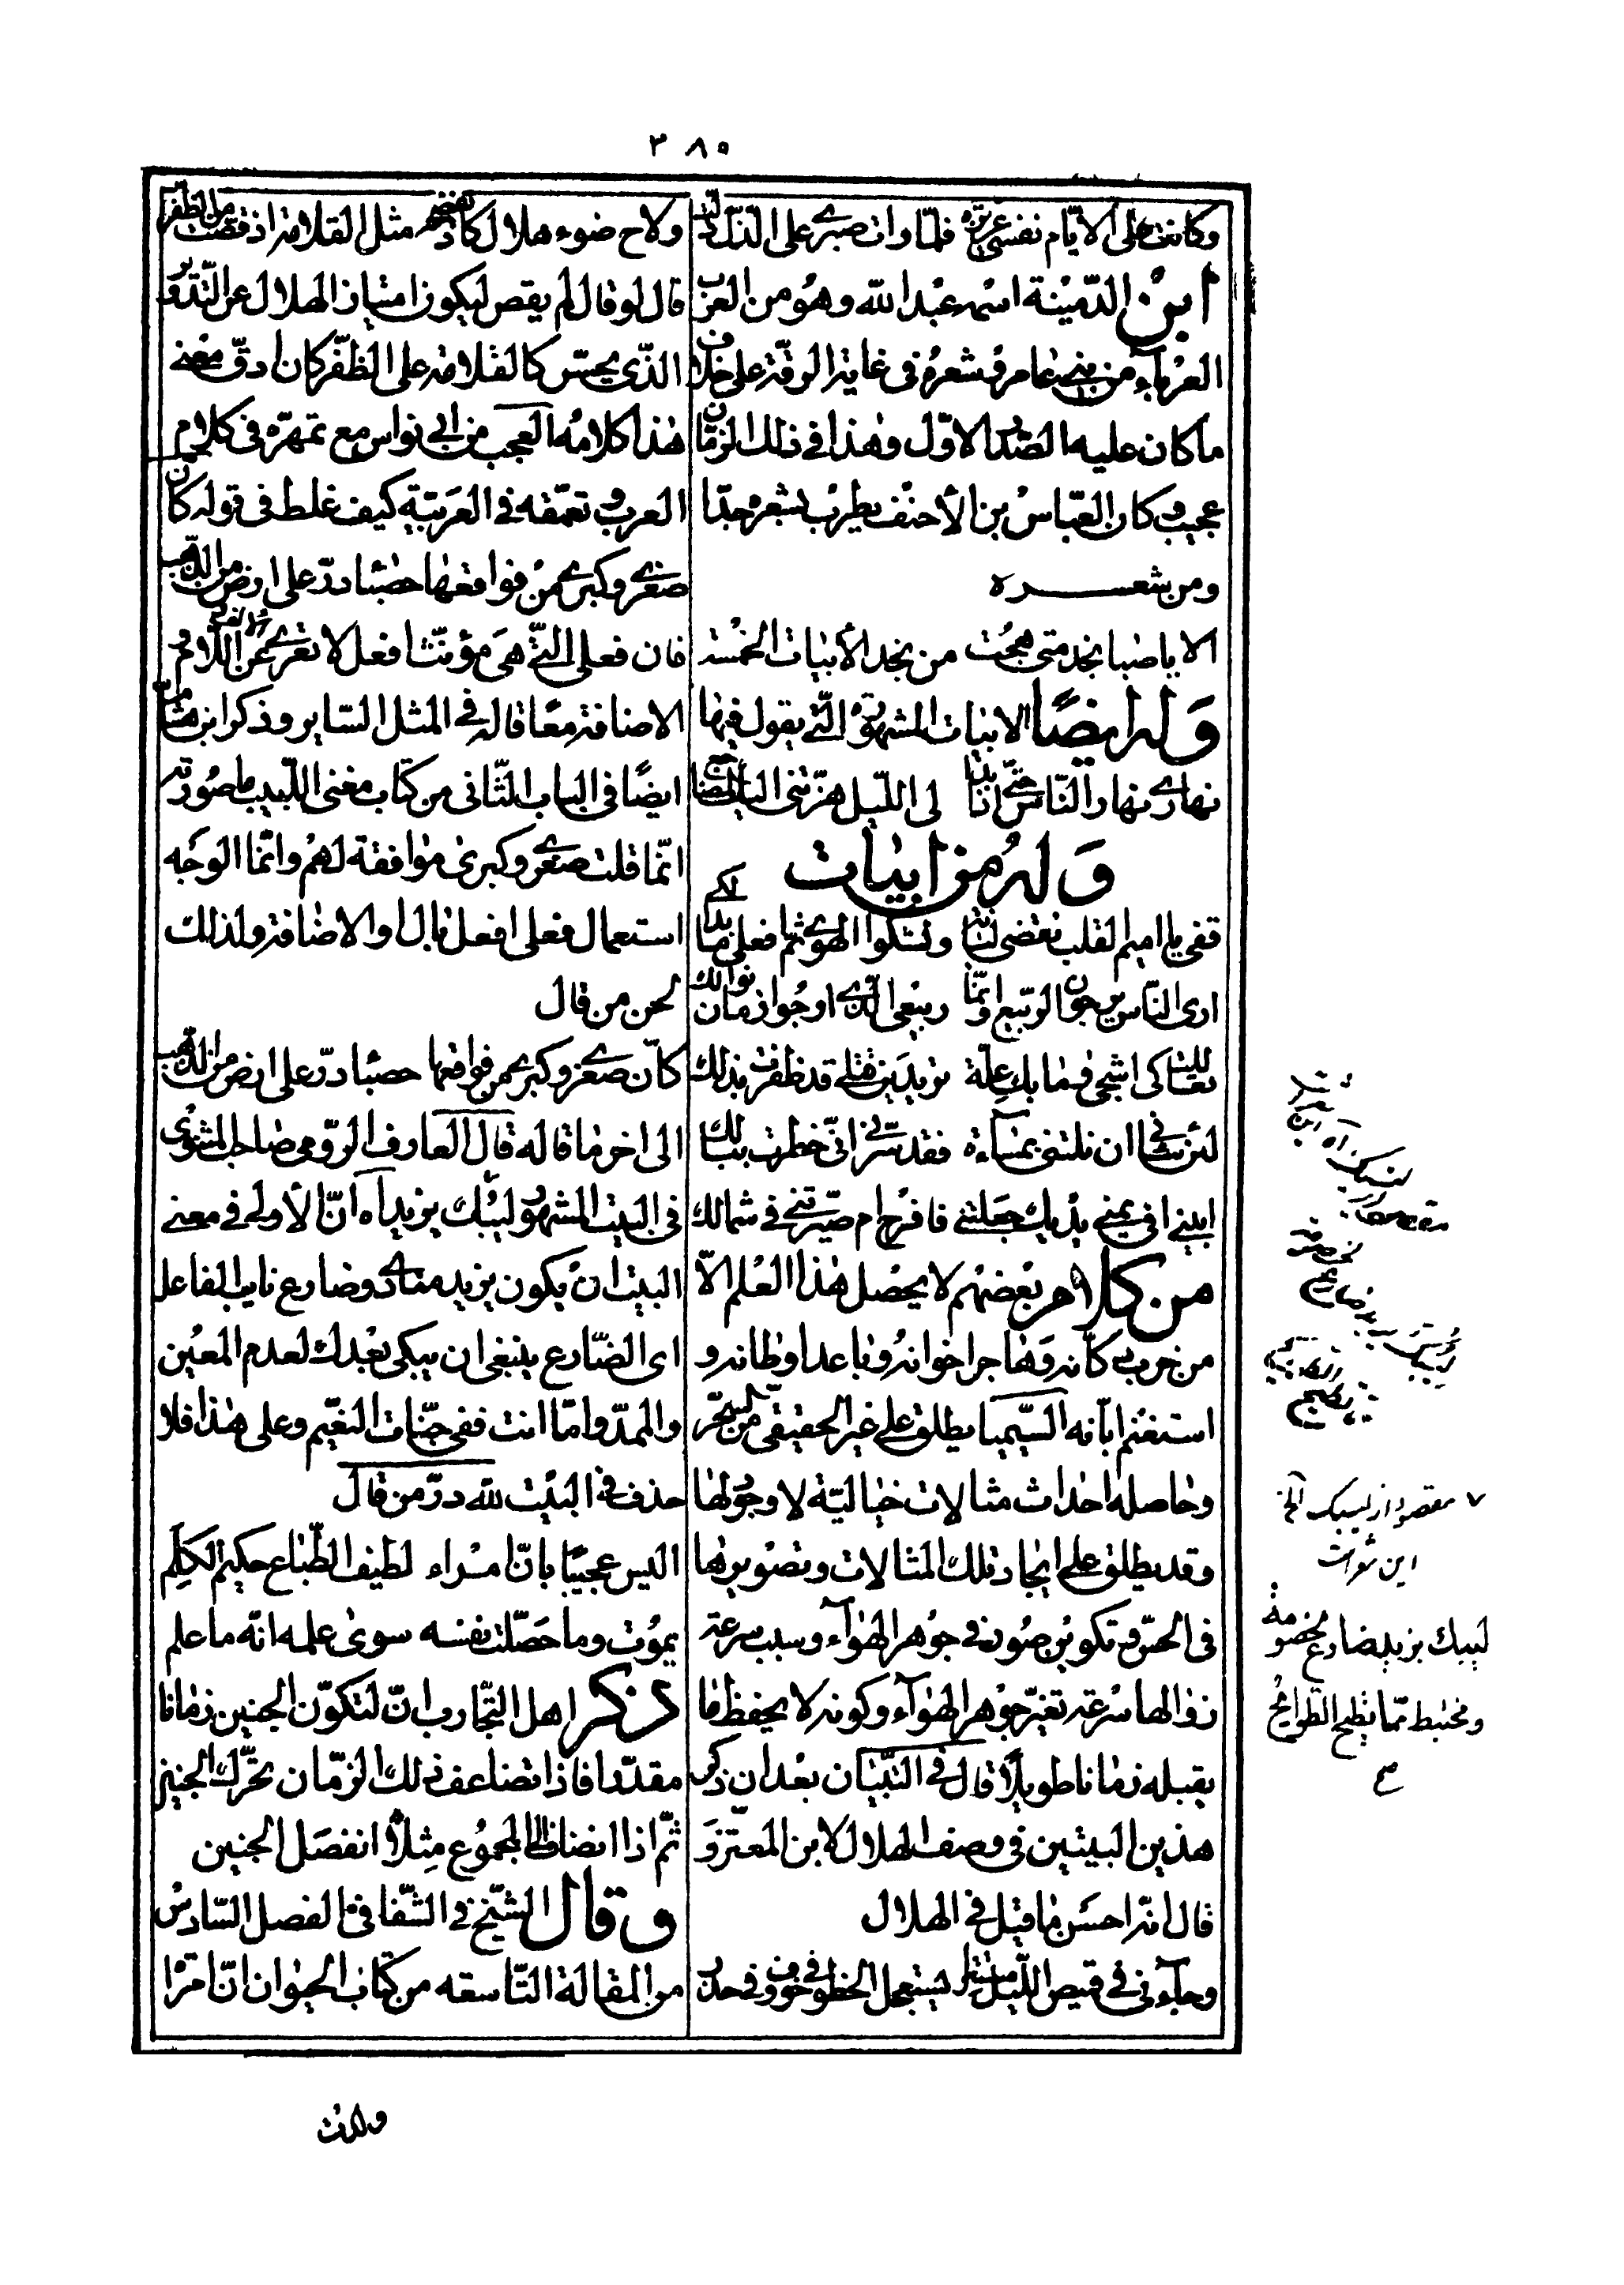 ٣٨٥
وكانت على الايّام نفسى عزيزة فلمّا رات صبرى على الذّل ذلت
ابن الدّمينة اسمه عبد الله وهو من العرب
العرباء من بنى عامر وشعره فى غاية الرقّة على خلاف
ما كان عليه الصّدر الاوّل وهذا فى ذلك الزّمان
عجيب وكان العبّاس بن الأحنف يطرب بشعره جدّا
ومن شعره
الا يا صبا نجد متى هجت من نجد الأبيات الخمسة
وله ايضًا الابيات المشهورة الّتى يقول فيها
نهارى نهار النّاس حتّى اذا بدا لى اللّيل هزّتنى اليك المضاجع
وله من ابيات
قفى يا اميم القلب نقضى لبانة ونشكوا الهوى ثمّ افعلى ما بدا لك
ارى النّاس يرجون الرّبيع وانّما ربيعى الّذى ارجوا زمان نوالك
تعاللت كى اشجى وما بك علّة تريدين قتلى قد ظفرت بذلك
لئن ساءنى ان نلتنى بمساءة فقد سرّنى انّى خطرت ببالك
ابينى افى يمنى يديك جعلتنى فافرح ام صيّرتنى فى شمالك
من كلام بعضهم لا يحصل هذا العلم الاّ
من خرب دكّانه وهاجر اخوانه وباعد اوطانه و
استغنم ابآنه السّيميا يطلق على غير الحقيقى من السّحر
وحاصله احداث مثالات خياليّة لا وجود لها
وقد يطلق على ايجاد تلك المثالات وتصويرها
فى الحسّ وتكوين صور فى جوهر الهوآء وسبب سرعة
زوالها سرعة تغيّر جوهر الهوآء وكونه لا يحفظ ما
يقبله زمانا طويلاً قال فى التّبيان بعد ان ذكر
هذين البيتين فى وصف الهلال لابن المعتز و
قال انّه احسن ما قيل فى الهلال
وجآءنى فى قميص اللّيل مستترا يستعجل الخطو فى خوف وفى حذر
ولاح ضوء هلال كاد يفضحه مثل القلامة اذ قصّت من الظّفر
قال لو قال لم يقص ليكون امتياز الهلال عن التّدوير
الذّى يحسّ كالقلامة على الظّفر كان ادقّ معنى
هذا كلامه العجب من ابى نواس مع تمهّره فى كلام
العرب وتعمّقه فى العربيّة كيف غلط فى قوله كان
صغرى وكبرى من فواقعها حصباء درّ على ارض من الذّهب
فان فعلى الّتى هى مؤنّث افعل لا تعرى عن اللّام و
الاضافة معا قاله فى المثل السّاير وذكر ابن هشام
ايضًا فى الباب الثّانى من كتاب مغنى اللّبيب ما صورته
انّما قلت صغرى وكبرى موافقة لهم وانّما الوجه
استعمال فعلى افعل بال او الاضافة ولذلك
لحن من قال
كأنّ صغرى وكبرى من فواقعها حصباء درّ على ارض من الذّهب
الى اخر ما قاله قال العارف الرّومى صاحب المثنوى
فى البيت المشهور ليبك يزيد آه انّ الأولى فى معنى
البيت ان يكون يزيد منادى وضارع نايب الفاعل
اى الضّارع ينبغى ان يبكى بعدك لعدم المعين
والممدّ وامّا انت ففى جنّات النّعيم وعلى هذا فلا
حذف فى البيت لله درّ من قال
اليس عجيبًا بانّ امرء لطيف الطّباع حكيم الكلم
يموت وما حصّلت نفسه سوى علمه انّه ما علم
ذكر اهل التّجارب انّ لتكوّن الجنين زمانا
مقدّرا فاذا تضاعف ذلك الزّمان تحرّك الجنين
ثمّ اذا انضاف الى المجموع مثلاه انفصل الجنين
وقال الشّيخ فى الشّفا فى الفصل السّادس
من المقالة التّاسعه من كتاب الحيوان انّ امرأة
ولدت
٧ مقصود از ليبك الخ
اين شعر است
ليبك يزيد ضارع لخصومة
ومختبط ممّا تطيح الطّوايح